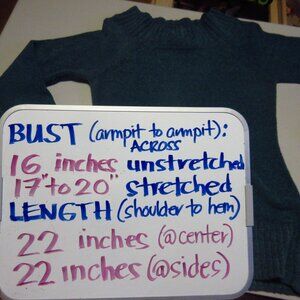 BUST (armpit to armpit):
ACROSS
16 inches unstretched
17" to 20" stretched
LENGTH (shoulder to hem)
22 inches (@center)
22 inches (@sides)